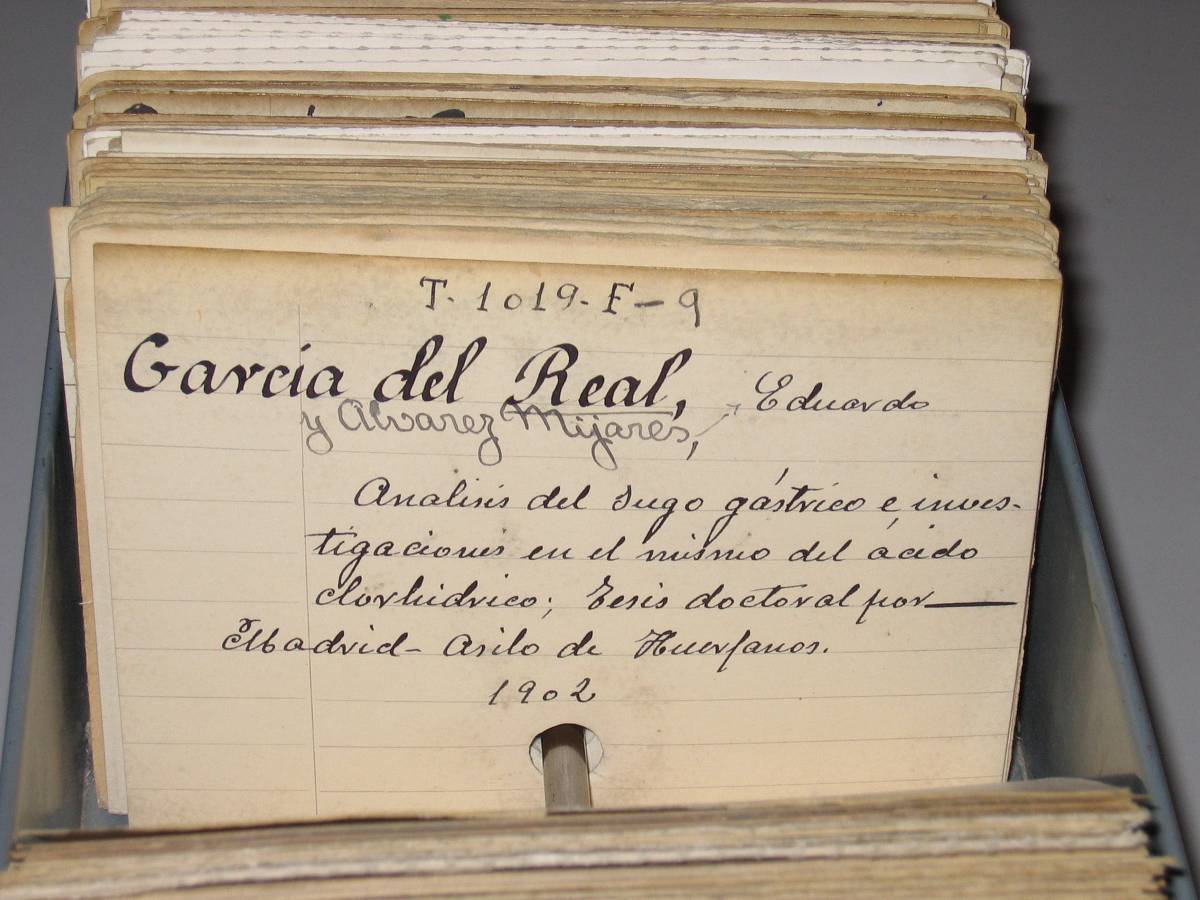 T. 1019-F-9
García del Real, Eduardo
y Alvarez Mijares,
Analisis del Jugo gástrico e inves-
tigaciones en el mismo del ácido
clorhidrico; Tesis doctoral por—
Madrid- Asilo de Huerfanos.
1902